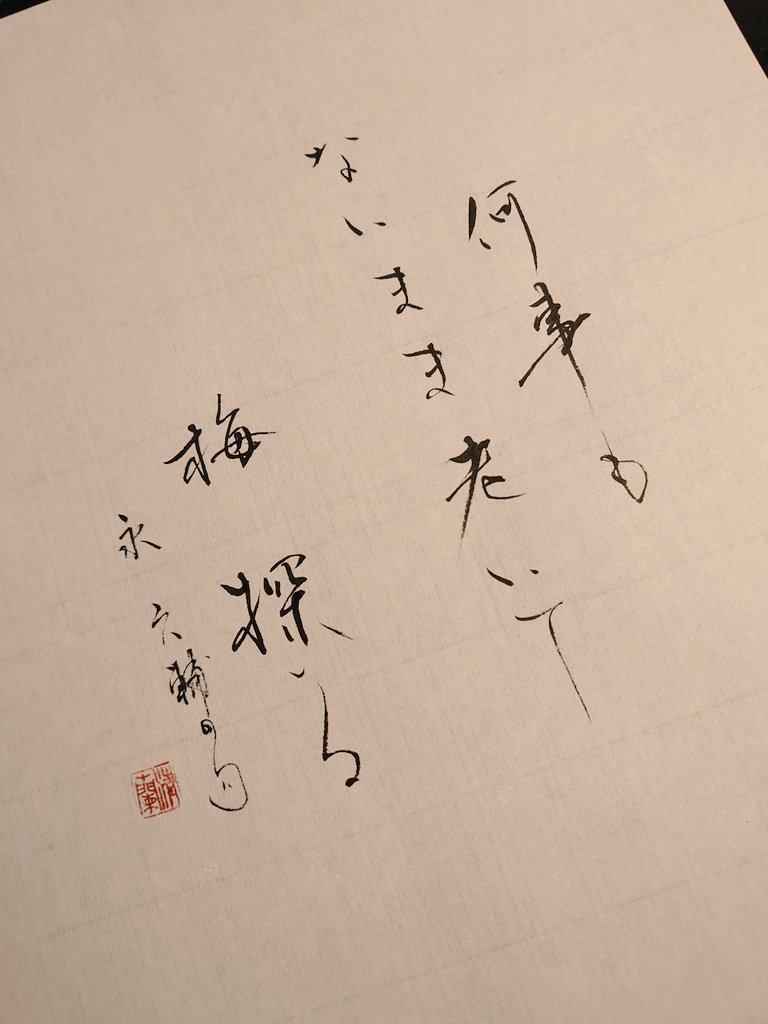 何事も
ないまま老いて
梅探る
永六輔の句